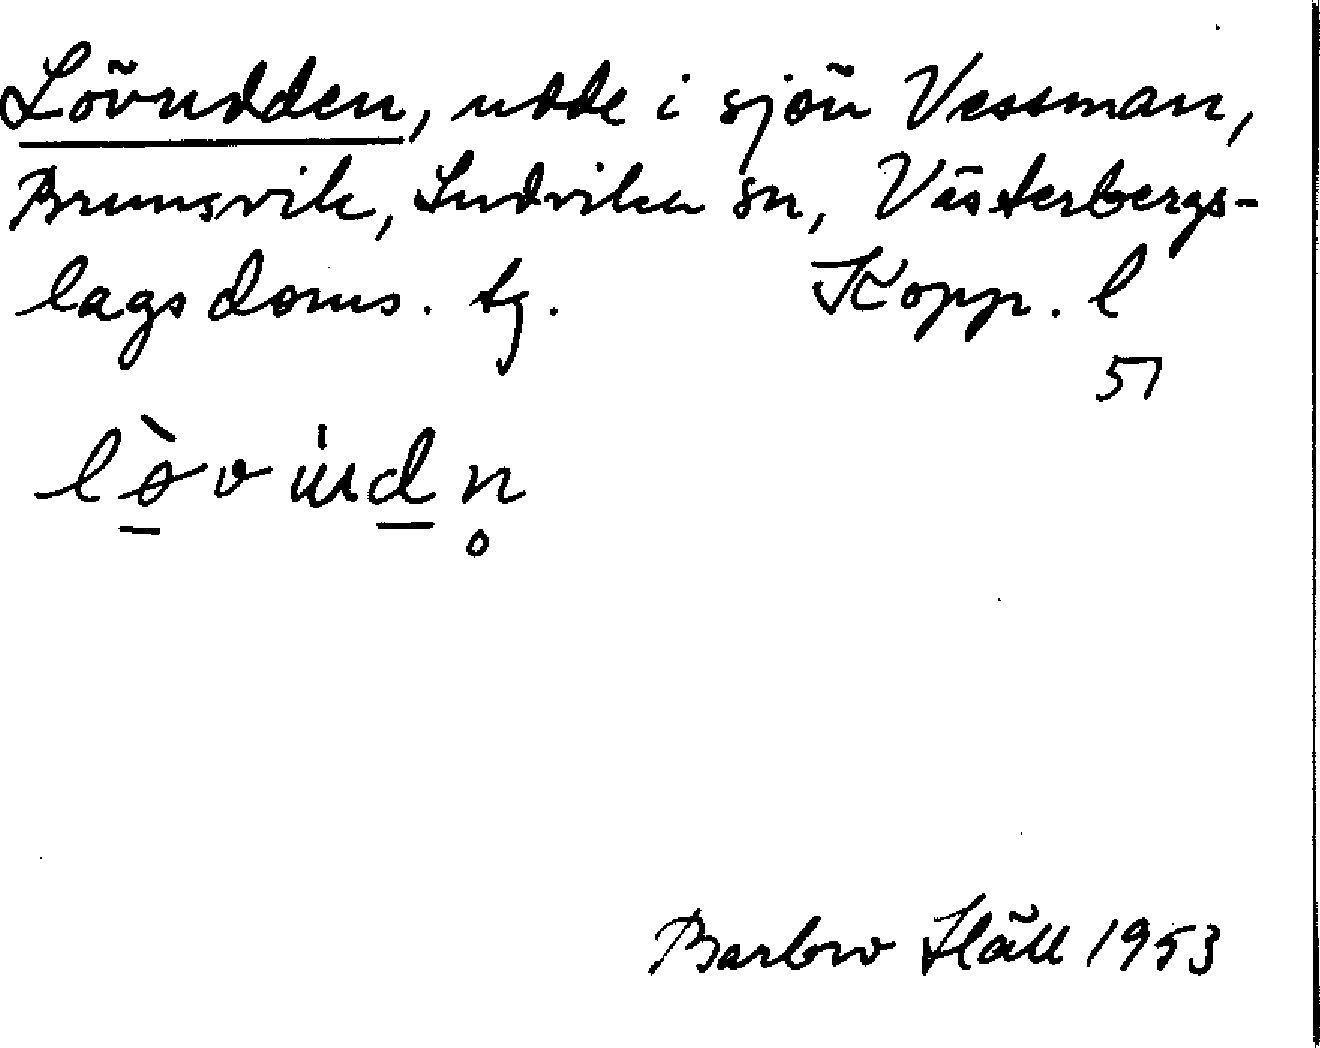 Lövudden, udde i sjön Vessman,
Brunsvik, Ludvika sn, Västerbergs-
lags doms. tg. Kopp. l
57
Barbro Häll 1953